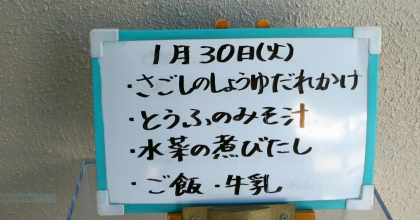 1月30日(火)
・さごしのしょうゆだれかけ
・とうふのみそ汁
・水菜の煮びたし
・ご飯・牛乳